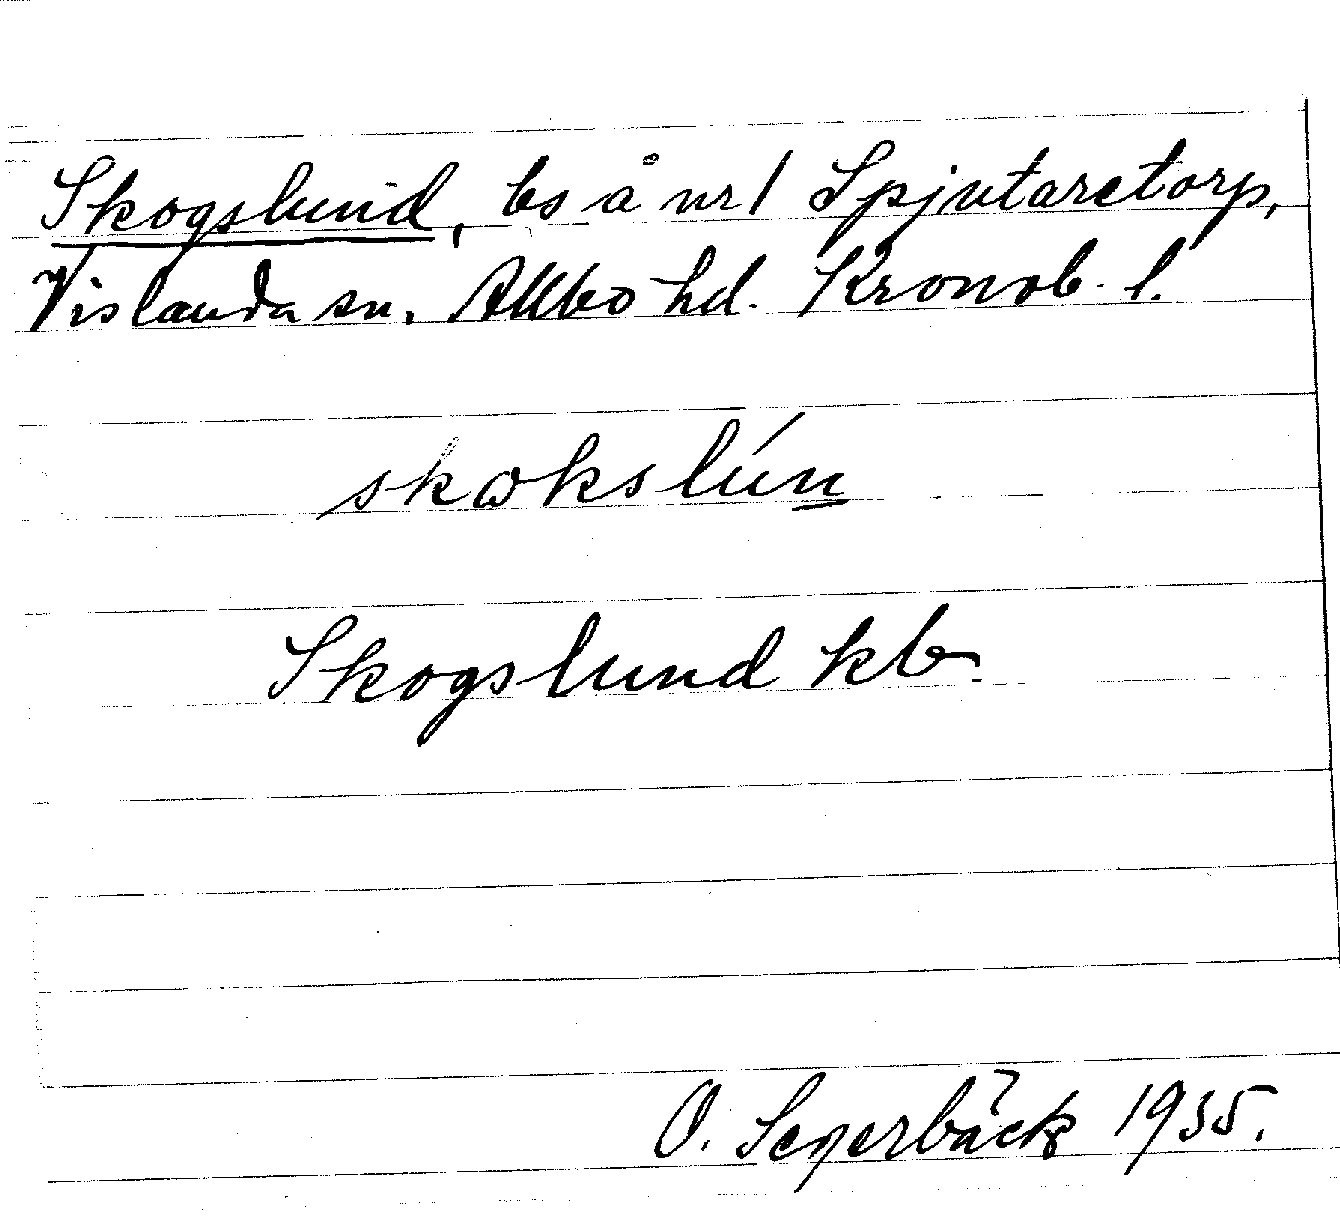 Skogslund, bs å nr 1 Spjutaretorp,
Vislanda sn. Allbo hd. Kronob. l.
skɷkslún
Skogslund kb
O. Segerbäck 1935.